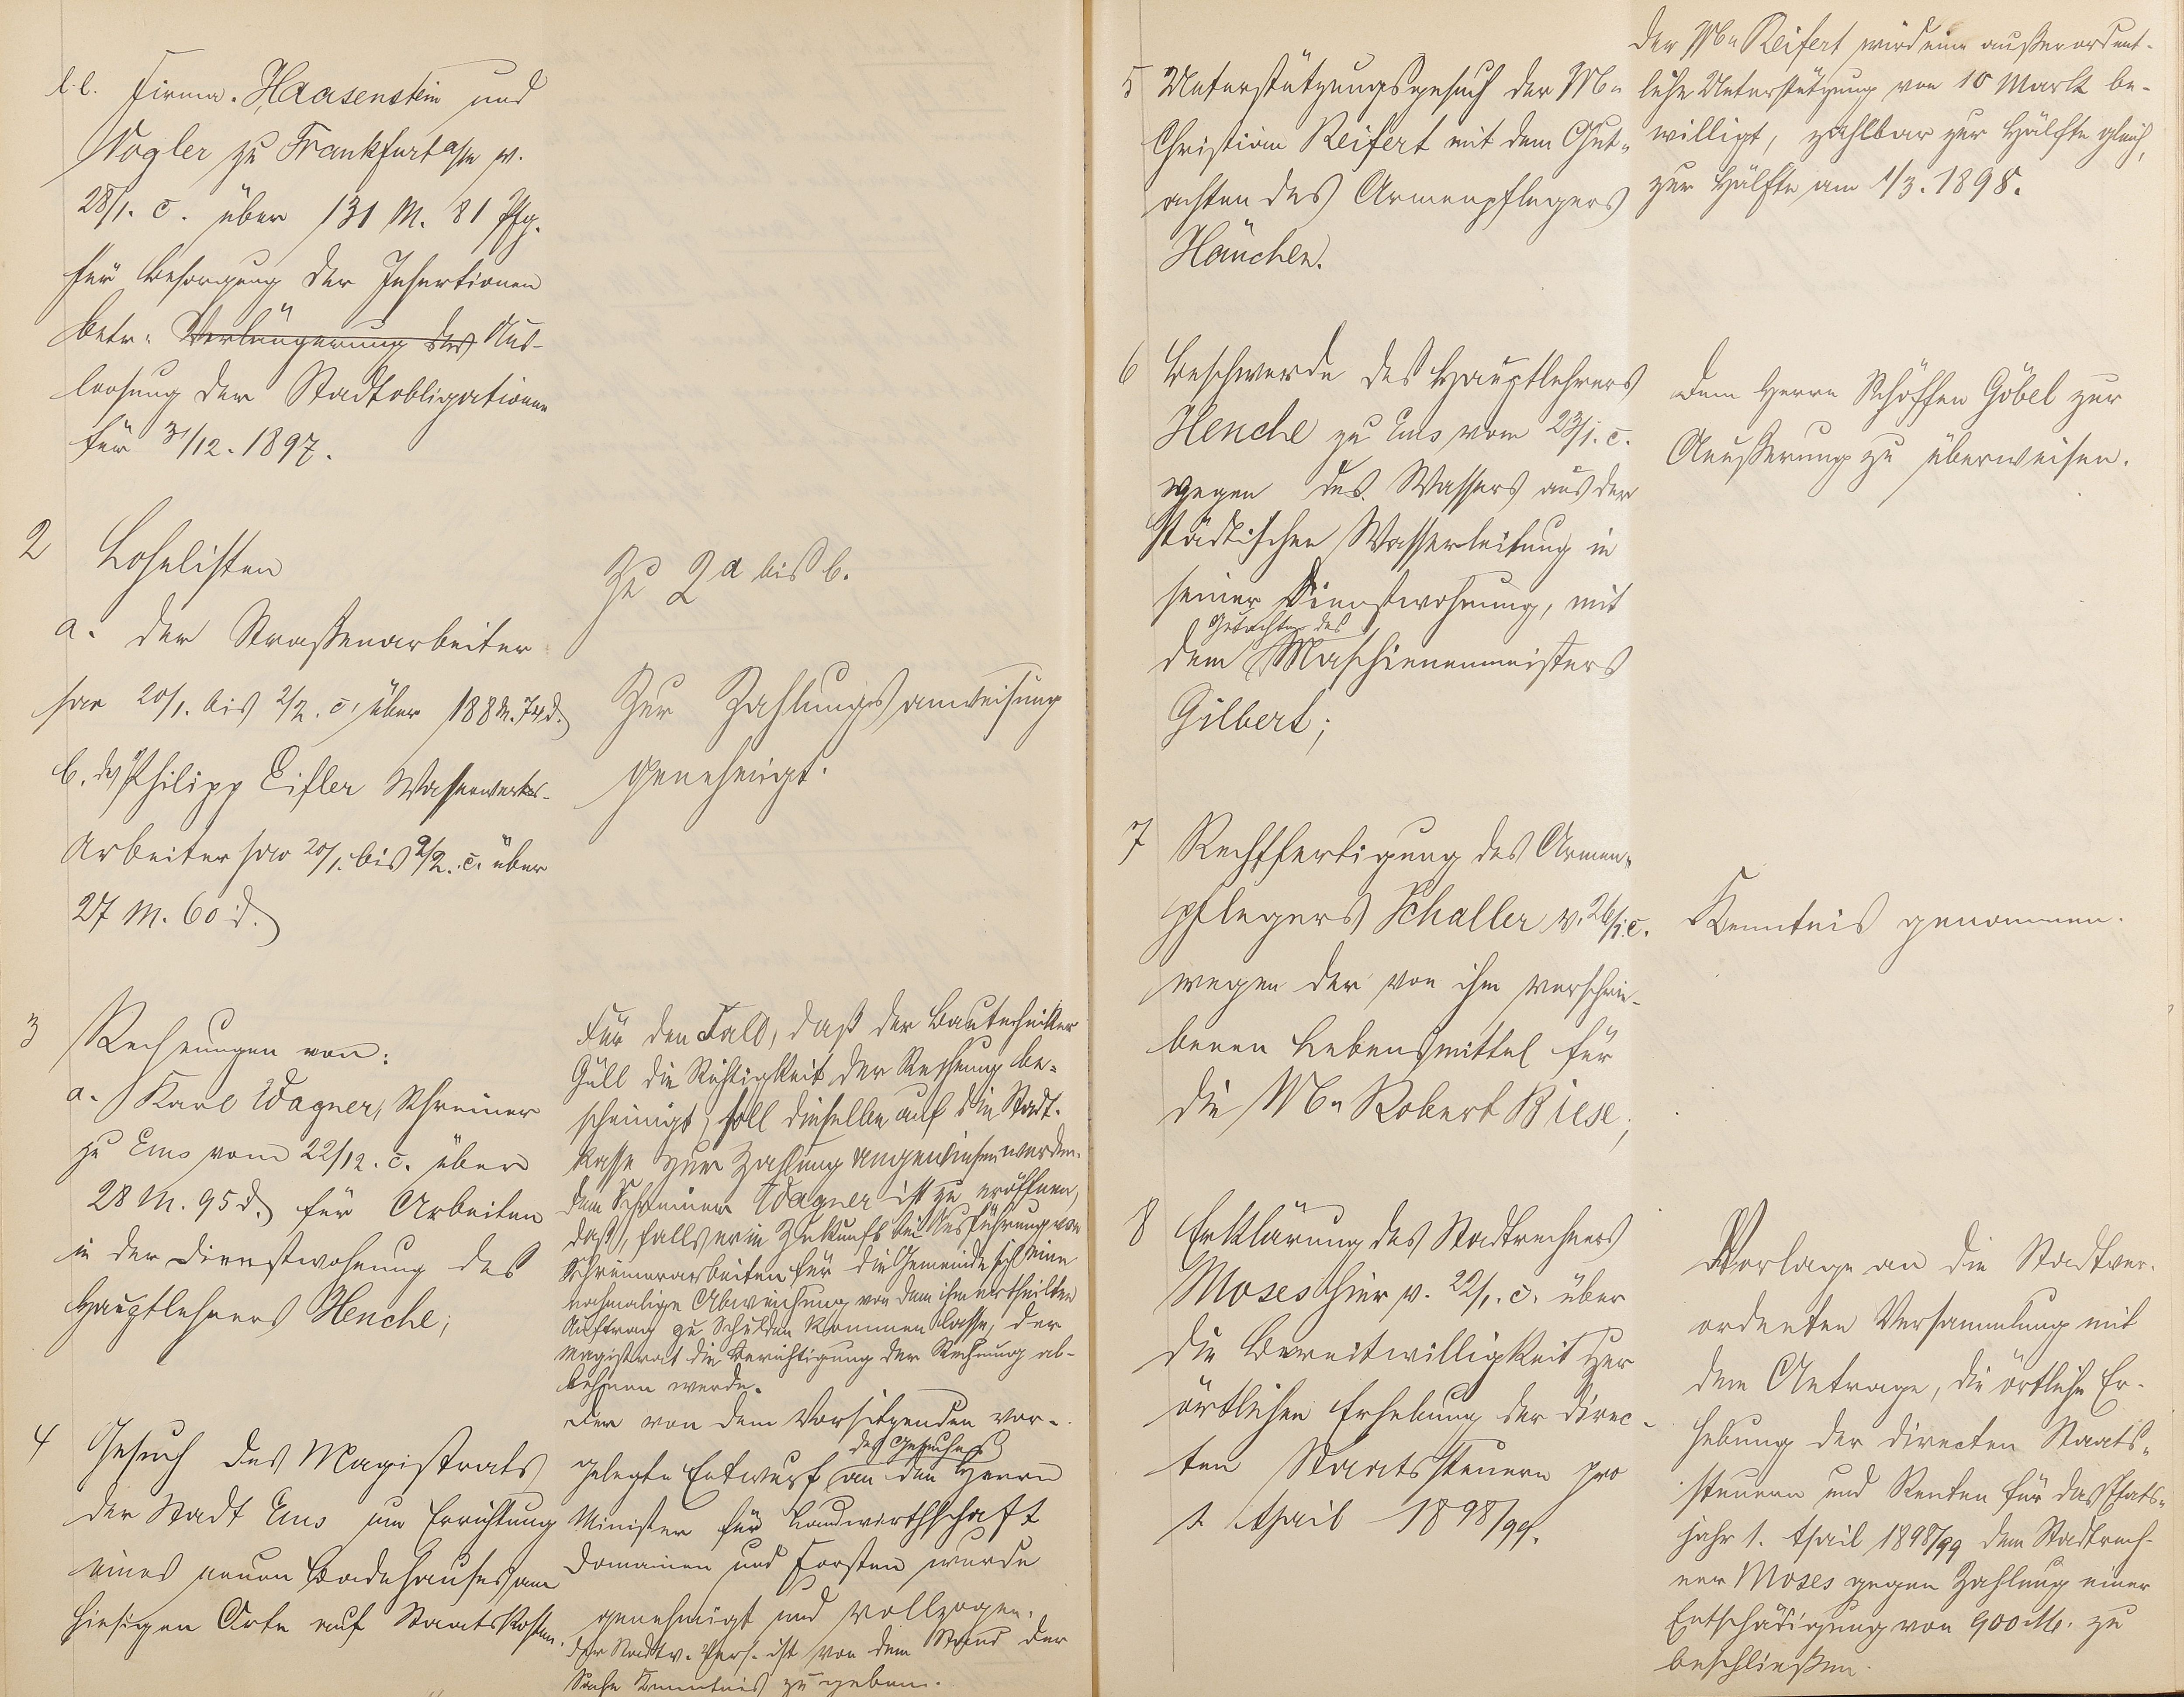 l.l. Firma. Haasenstein und
Vogler zu Frankfurt a/m v.
28/1. c. über 131 M. 81 Pfg.
für Besorgung der Insertionen
betr. Verlängerung des Aus-
loosung der Stadtobligationen
für 31/12. 1897.
2 Lohnlisten
a. der Straßenarbeiter
pro 20/1. bis 2/2. c. über 188 M. 74 d.
b. des Philipp Eifler Wasserwerks-
Arbeiter pro 20/1. bis 2/2. c. über
27 M. 60 d.
Zu 2 a bis b.
Zur Zahlungsanweisung
genehmigt.
3 Rechnungen von:
a. Karl Wagner, Schreiner
zu Ems vom 22/12. c. über
28 M. 95 d. für Arbeiten
in der Dienstwohnung des
Hauptlehrers Henche;
Für den Fall, daß der Bautechniker
Güll die Richtigkeit der Rechnung be-
scheinigt, soll dieselbe auf die Stadt-
kasse zur Zahlung angewiesen werden.
Dem Schreiner Wagner ist zu eröffnen,
daß, falls er in Zukunft bei Ausführung von
Schreinerarbeiten für die Gemeinde sich eine
nochmalige Abweichung von dem ihm ertheilten
Auftrag zu Schulden kommen lasse, der
Magistrat die Berichtigung der Rechnung ab-
lehnen werde.
4 Gesuch des Magistrats
der Stadt Ems um Errichtung
eines neuen Badehauses am
hiesigen Orte auf Staatskosten.
Der von dem Vorsitzenden vor-
des Gesuches
gelegte Entwurf an den Herrn
Minister für Landwirthschaft
Domainen und Forsten wurde
genehmigt und vollzogen.
Der Stadtv. Vers. ist von dem Stand der
Sache Kenntnis zu geben.
5 Unterstützungsgesuch der Wwe
Christian Reifert mit dem Gut-
achten des Armenpflegers
Häuchen.
Der Wwe Reifert wird eine außerordent-
liche Unterstützung von 10 Mark be-
willigt, zahlbar zur Hälfte gleich,
zur Hälfte am 1/3. 1898.
6 Beschwerde des Hauptlehrers
Henche zu Ems vom 23/1. c.
wegen des Wassers aus der
städtischen Wasserleitung in
seiner Dienstwohnung, mit
Gutachten des
dem Maschienenmeisters
Gilbert;
Dem Herrn Schöffen Göbel zur
Aeußerung zu überweisen.
7 Rechtfertigung des Armen-
pflegers Schaller v. 26/1. c.
wegen der von ihm verschrie-
benen Lebensmittel für
die Wwe Robert Biese;
Kenntnis genommen.
8 Erklärung des Stadtrechners
Moses hier v. 22/1. c. über
die Bereitwilligkeit zur
örtlichen Erhebung der direc-
ten Staatssteuern pro
1. April 1898/99.
Vorlage an die Stadtver-
ordneten Versammlung mit
dem Antrage, die örtliche Er-
hebung der directen Staats-
steuern und Renten für das Etats-
jahr 1. April 1898/99 dem Stadtrech-
ner Moses gegen Zahlung einer
Entschädigung von 900 M. zu
beschließen.